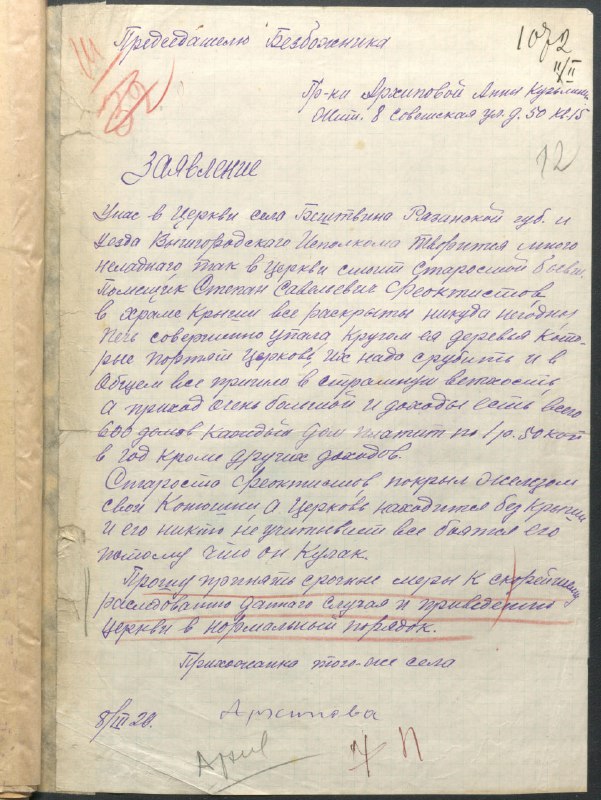 Председателю Безбожника
1072
11/II
Гр-ки Архиповой Анны Кузьмин.
Жит. 8 Советская ул. д. 50 кв. 15
12
Заявление
У нас в Церкви села Рязанской губ. и
уезда Вышгородского Исполкома творится много
неладного так в Церкви стоит Старостой бывш.
Помещик Степан Савельевич Феоктистов,
в храме Крыши все раскрыты никуда негодны
Печь совершенно упала, Кругом ея деревья Кото-
рые портят Церковь, их надо срубить и в
Общем все пришло в страшную ветхость,
а приход очень большой и доходы есть всего
600 домов Каждый дом платит по 1 р. 50 коп
в год кроме других доходов.
Староста Феоктистов покрыл железом
свои Конюшни а Церковь находится без Крыши
и его никто не учитывает все боятся его
потому что он Кулак.
Прошу принять срочные меры К скорейшему
раследованию данного случая и приведению
церкви в нормальный порядок.
Прихожанка того-же села
8/III 28. Архипова
Архив